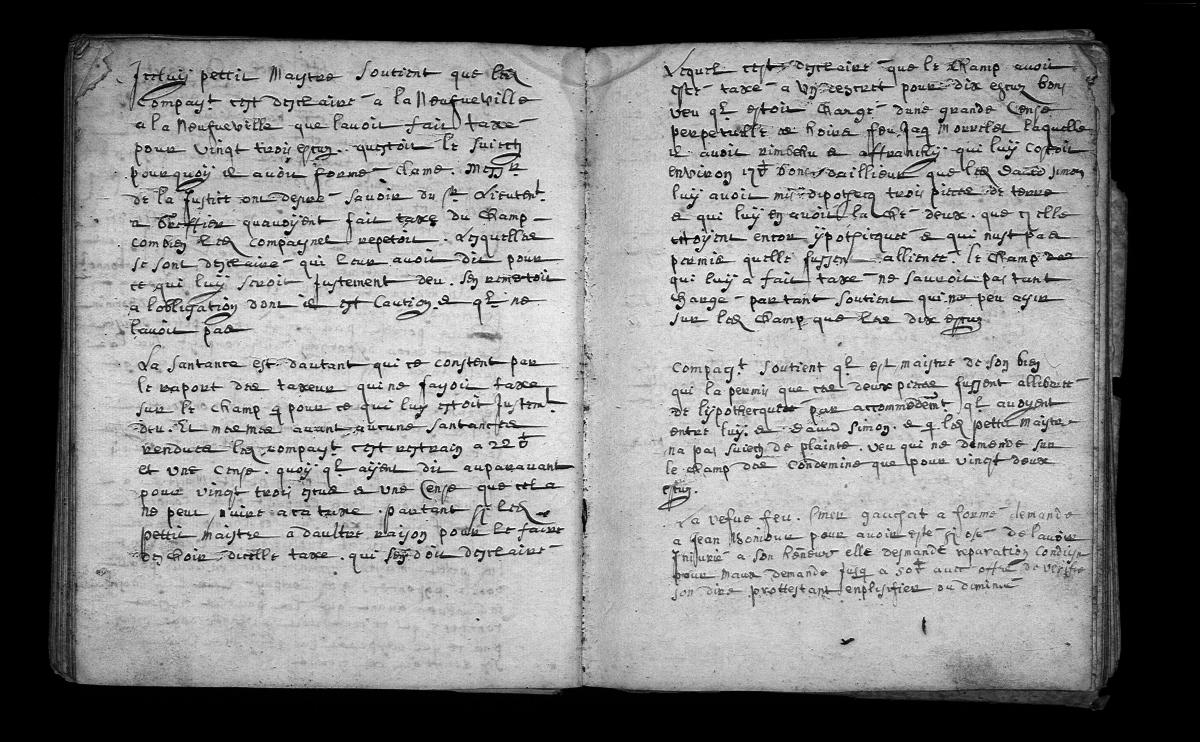 Icelluy pettit Maistre soutient que led
Compayt cest desclairé a la Neufueville
a la Neufueville que lavoit fait taxé
pour vingt trois escus questoit le suiect
pourquoy il avoit formé clame. Messrs
de la Justice ont desiré savoir du Sr Lieutent
a Greffier quavoyent fait taxe du Champ
combien led Compaynet repetoit. Lesquelles
se sont desclairé qui leur avoit dit pour
ce qui luy seroit Justement deu. sen remetoit
a lobligation dont il est Caution & ql ne
lavoit pas
La santance est dautant qui ce constent par
le raport des taxeur qui ne fasoit taxé
sur le champ q pour ce qui luy estoit Justemt
deu. Et mesmes avant aucune santances
rendues led compayt cest restrain a 22
et une Cense. quoy ql ayent dit auparavant
pour vingt trois escus & une Cense que cela
ne peut nuire a ca taxe. partant si led
pettit maistre a daultre raison pour le faire
deschoir dicelle taxe. qui sen doit desclairé
Lequel cest desclairé que le Champ avoit
esté taxé a un descret pour dix escus bon
veu ql estoit Chargé dune grande Cense
perpetuelle de hoirs feu Jaq Morrelet laquelle
il avoit rimbehu & affranchy qui luy costoit
environ 17 donc dailleur que led David Simon
luy avoit mis dipotecq trois piece de terre
& qui luy en avoit laché deux. que icelle
estoyent encor ypothicquée & qui nust pas
permis quelle fussent alliencé. le Champ
qui luy a fait taxé ne sauroit pas tant
charge partant soutient qui ne peu agir
sur led Champ que led dix escus
Compayt soutient ql est maistre de son bien
qui la permis que ces deux piece fussent allibrée
de lypothecque par accommodemt ql avoyent
entre luy. & David Simon. & q led pettit Maistre
na pas suiect de plainte. veu qui ne demende sur
le champ des Condemine que pour vingt deux
escus.
La vefue feu. Gauchat a formé demande
a Jean Bonjour pour avoir esté sy osé de lavoir
Injurié a son honneur elle desmande reparation
pour maux demande Jusq a 50 avec offre de verifie
son dire prottestant enplifier ou diminué